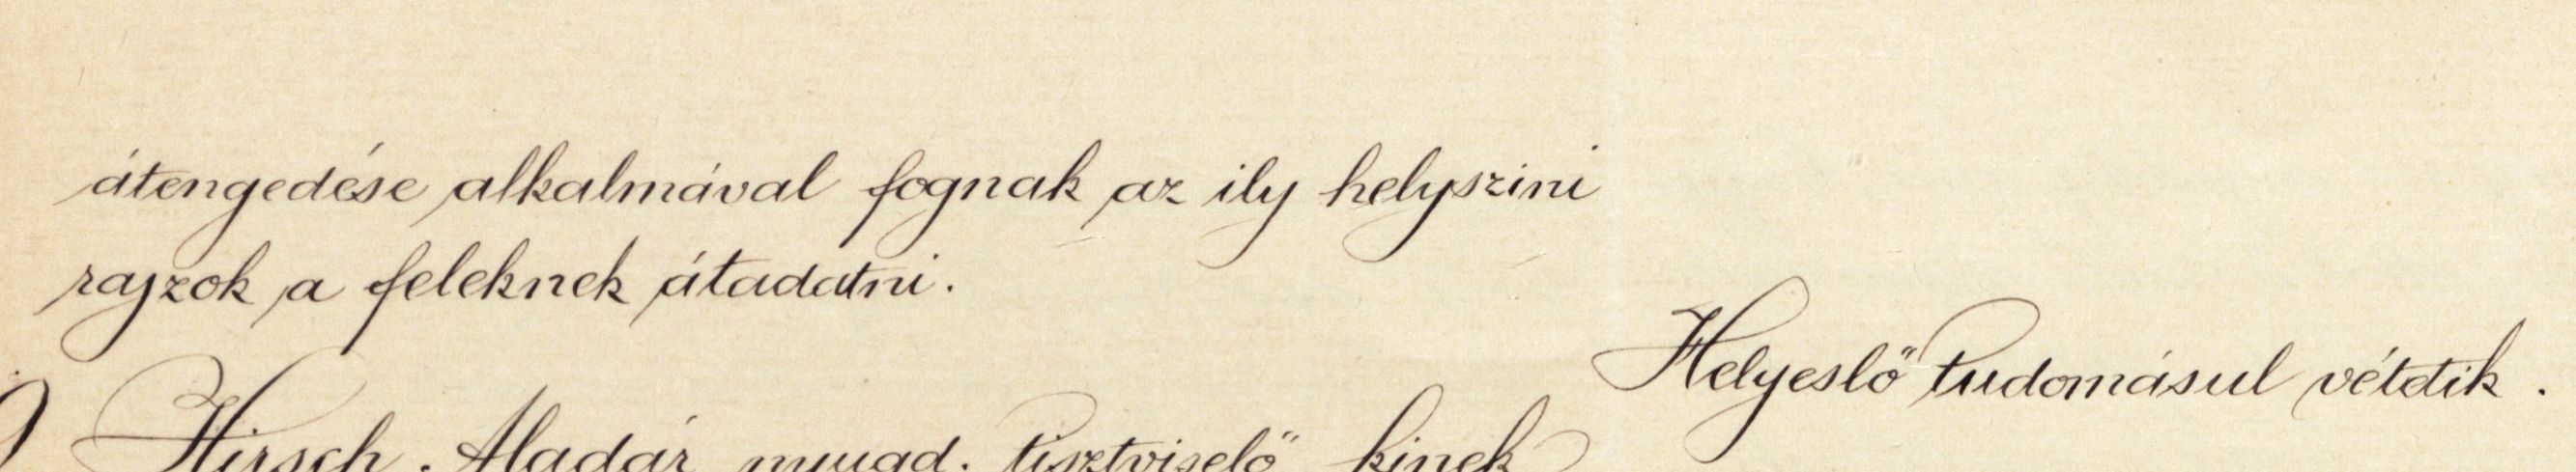 átengedése alkalmával fognak az ily helyszini
rajzok a feleknek átadatni.
Helyeslő tudomásul vétetik.
Hirsch Aladár nyugd. tisztviselő kinek